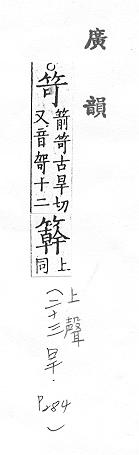 廣韻
○笴
箭笴古旱切
又音哿十二
簳
上
同
上聲
(二十三旱.P284)